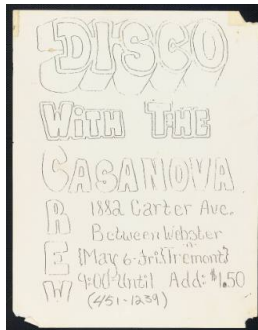 DISCO
WITH THE
CASANOVA
CREW
1882 Carter Ave.
Between Webster
n Tremont
(May 6-fri)
9:00-Until Add: $1.50
(451-1239)